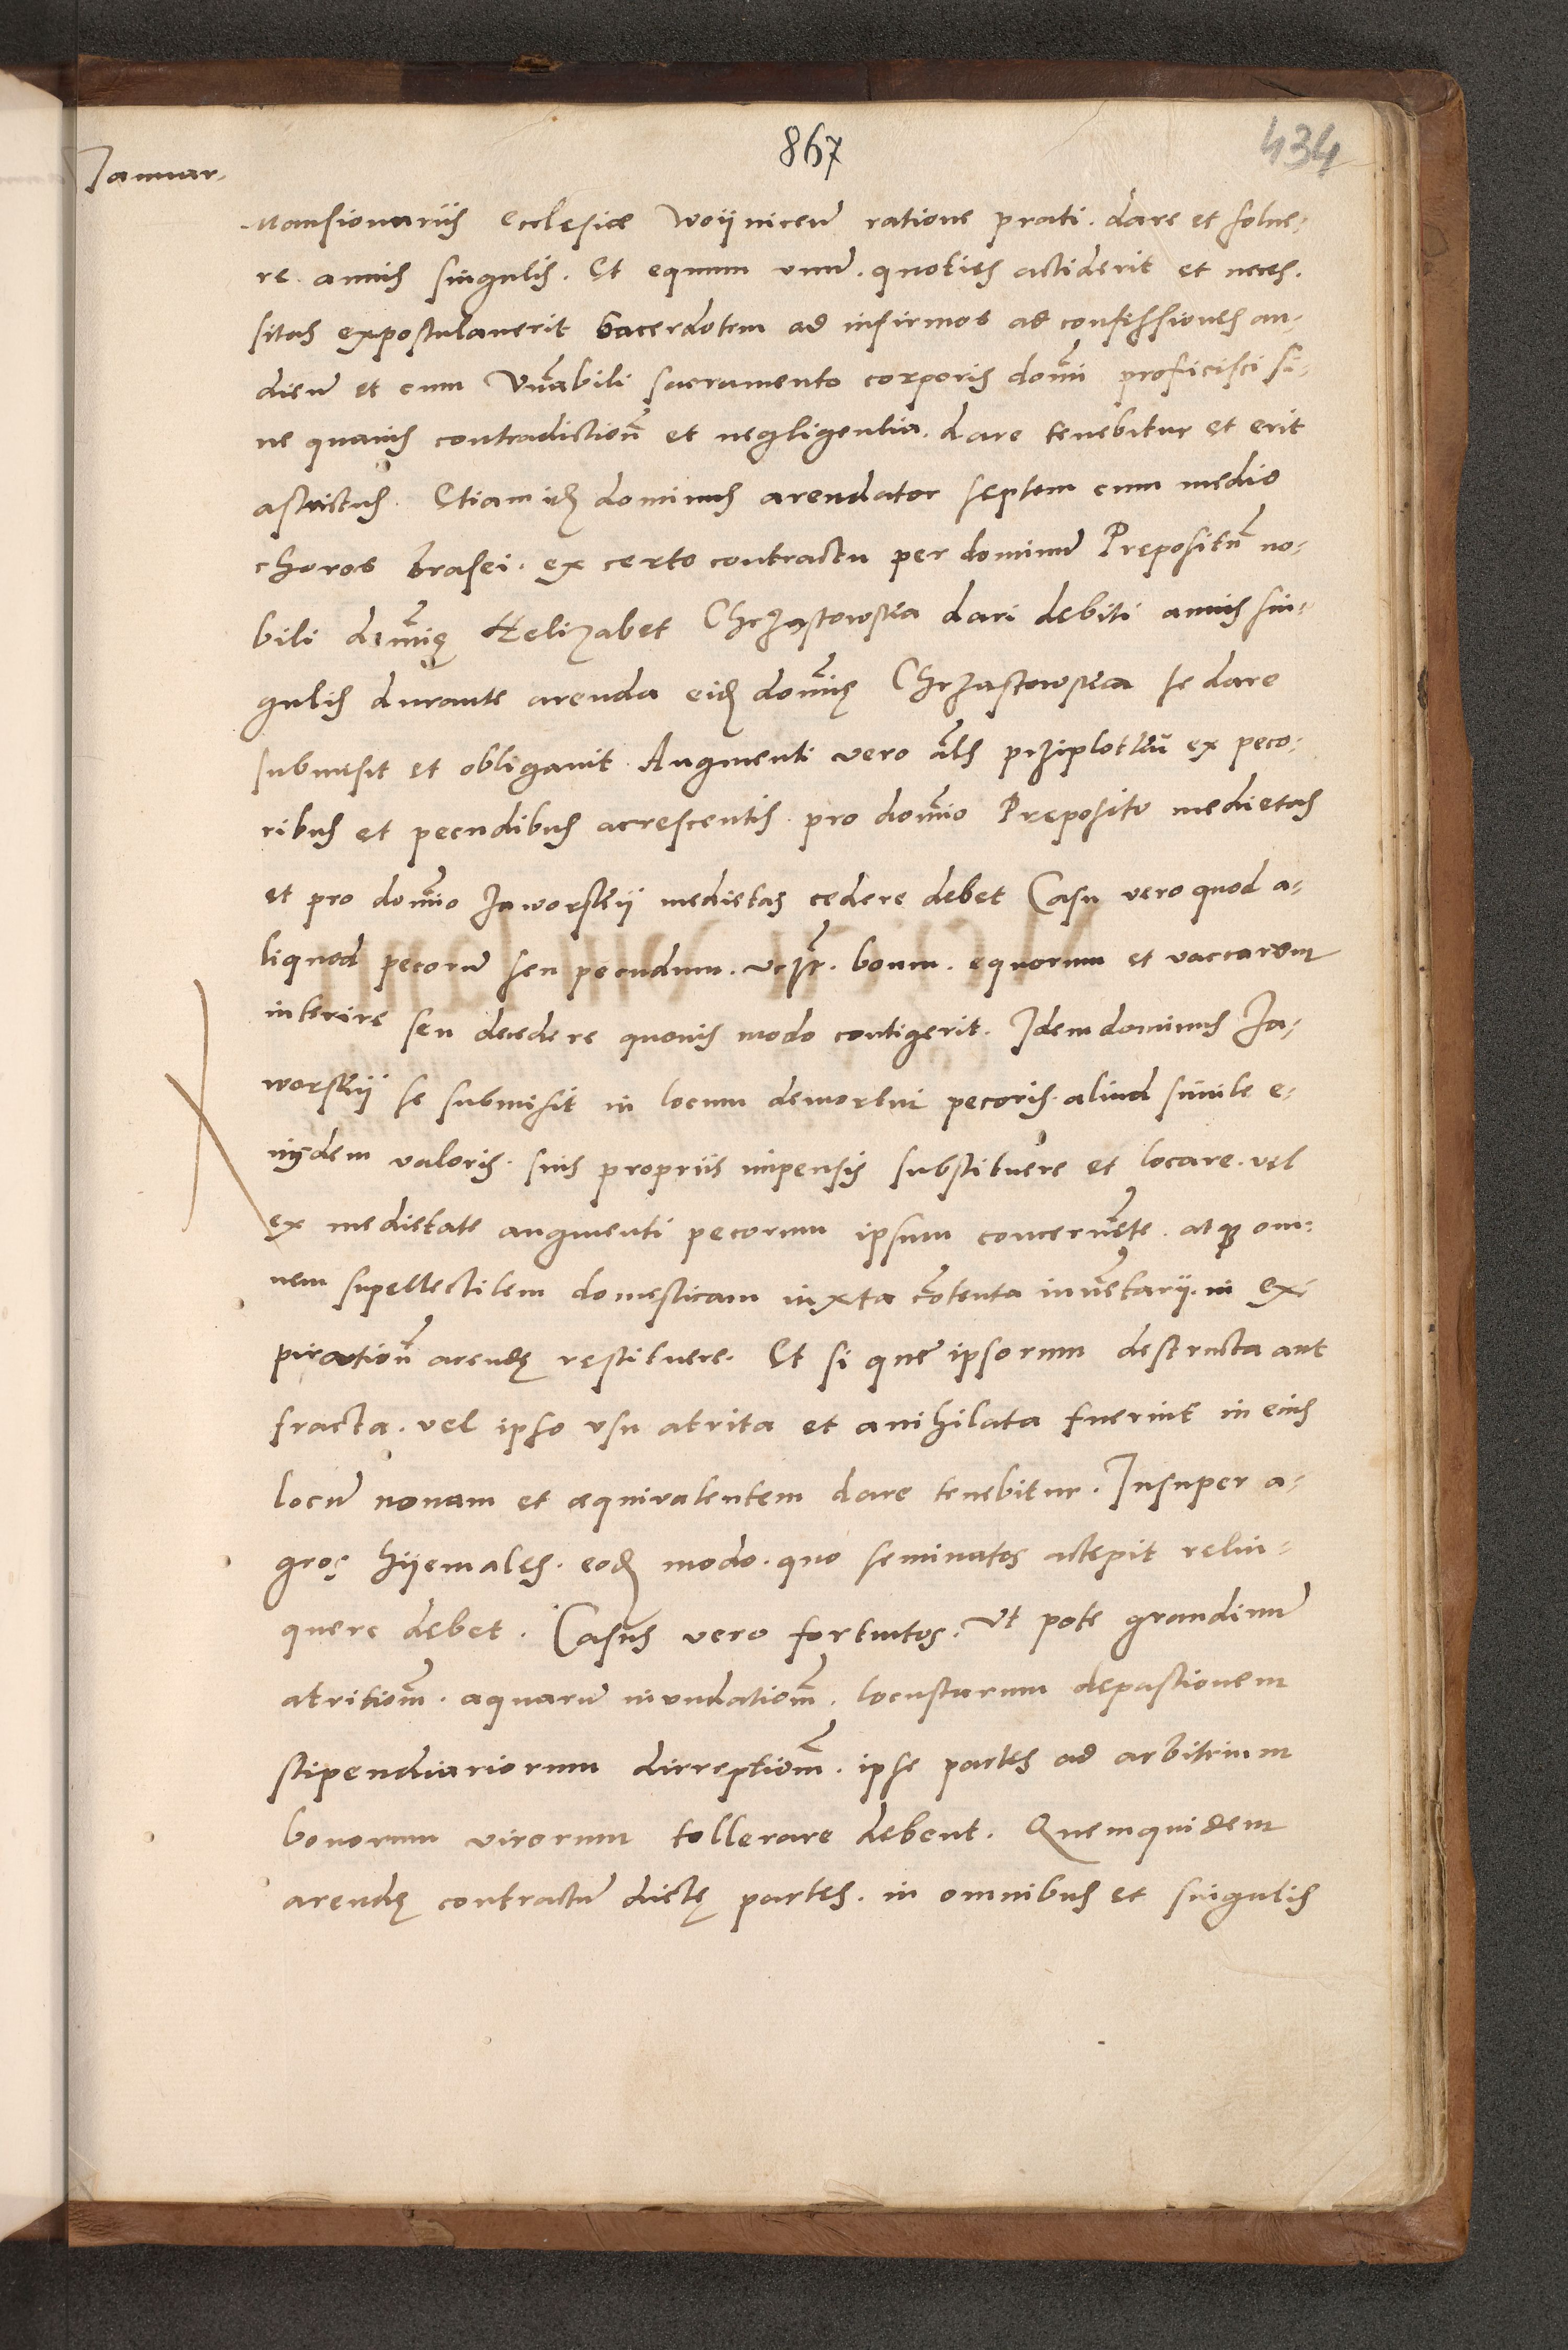 867
434
Januar.
Mansionariis Ecclesiæ Woÿniceñ ratione prati. dare et solue-
re. annis singulis. Et equum vnũ. quoties acciderit et neces.
sitas expostulauerit Sacerdotem ad infirmos ad confessiones au-
dieñ et cum Vñabili sacramento corporis domĩ proficisci si-
ne quauis contradictioñ et negligentia. dare tenebitur et erit
astrictus. Etiam idẽ dominus arendator septem cum medio
choros brasei. ex certo contractu per dominũ Prepositũ no-
bili dominę Helizabet Chrząstowska dari debiti annis sin-
gulis durante arenda eidẽ domĩę Chrząstowska se dare
submisit et obligauit. Augmenti vero als przÿplotku ex peco-
ribus et pecudibus accrescentis. pro domĩo Preposito medietas
et pro domĩo Jaworskÿ medietas cedere debet Casu vero quod a-
liquod pecorũ seu pecudum. vcz. boum. equorum et vaccarum
interire seu decedere quouis modo contigerit. Idem dominus Ja-
worskÿ se submisit in locum demortui pecoris. aliud simile e-
iusdem valoris. suis propriis impensis substituere et locare. vel
ex medietate augmenti pecorum ipsum concernẽte. atqꝫ om-
nem supellectilem domesticam iuxta cõtenta inuẽtarÿ. in ex-
piratioñ arendę restituere. Et si quẽ ipsorum destructa aut
fracta. vel ipso vsu atrita et anihilata fuerint in eius
locũ nouam et æquiualentem dare tenebitur. Insuper a-
gros hÿemales. eodẽ modo. quo seminatos accepit relin-
quere debet. Casus vero fortuitos. Vt pote grandinũ
atritioñ. aquarũ inundatioñ. locustarum depastionem
stipendiariorum dirreptioñ. ipse partes ad arbitrium
bonorum virorum tollerare debent. Quemquidem
arendę contractũ dictę partes. in omnibus et singulis